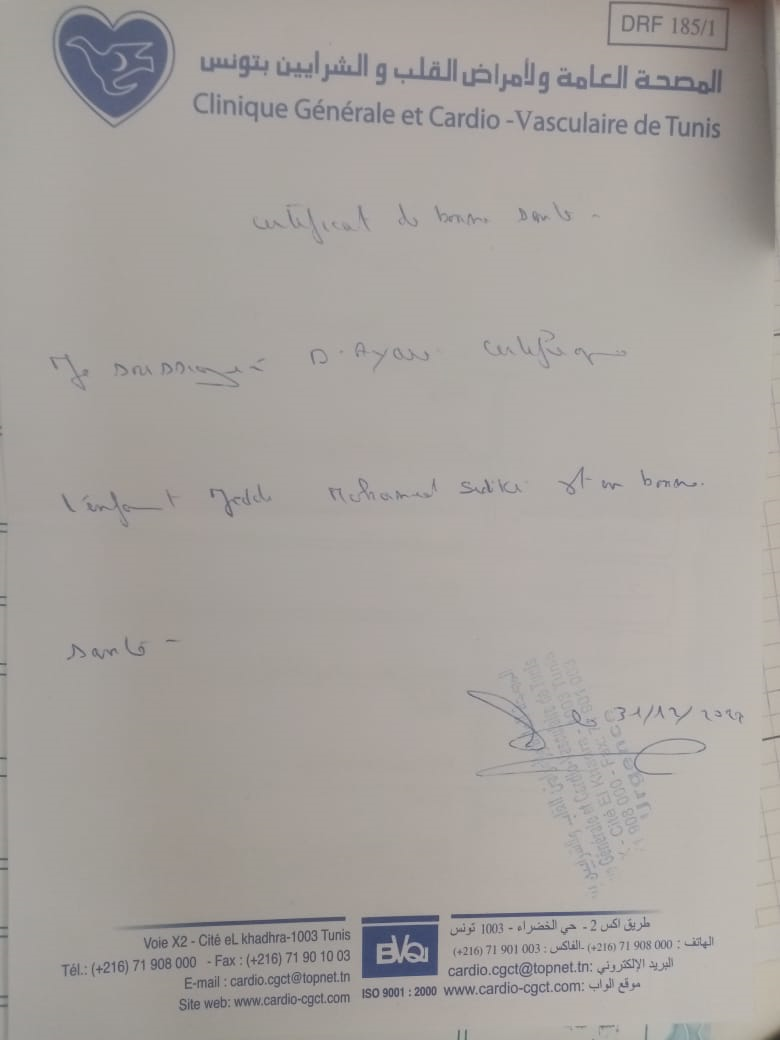 DRF 185/1
المصحة العامة ولأمراض القلب و الشرايين بتونس
Clinique Générale et Cardio -Vasculaire de Tunis
certificat de bonne santé -
Je soussigné D. Ayari certifie que
l'enfant Mohamed est en bonne.
santé -
le 31/12/2022
Urgence
Voie X2 - Cité eL khadhra-1003 Tunis
Tél.: (+216) 71 908 000 - Fax : (+216) 71 90 10 03
E-mail : cardio.cgct@topnet.tn
Site web: www.cardio-cgct.com
BVQI
ISO 9001 : 2000
طريق اكس 2 - حي الخضراء - 1003 تونس
الهاتف : 000 908 71 (216+) -الفاكس : 003 901 71 (216+)
البريد الإلكتروني :cardio.cgct@topnet.tn
موقع الواب :www.cardio-cgct.com